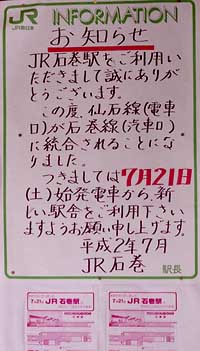 JR
JR東日本
INFORMATION
お知らせ
JR石巻駅をご利用い
ただきまして誠にありが
とうございます。
この度、仙石線(電車
口)が石巻線(汽車口)
に統合されることにな
りました。
つきましては7月21日
(土)始発電車から、新
しい駅舎をご利用下さい
ますようお願い申し上げます。
平成2年7月
JR石巻
駅長
7月21日 JR石巻駅
7月21日 JR石巻駅